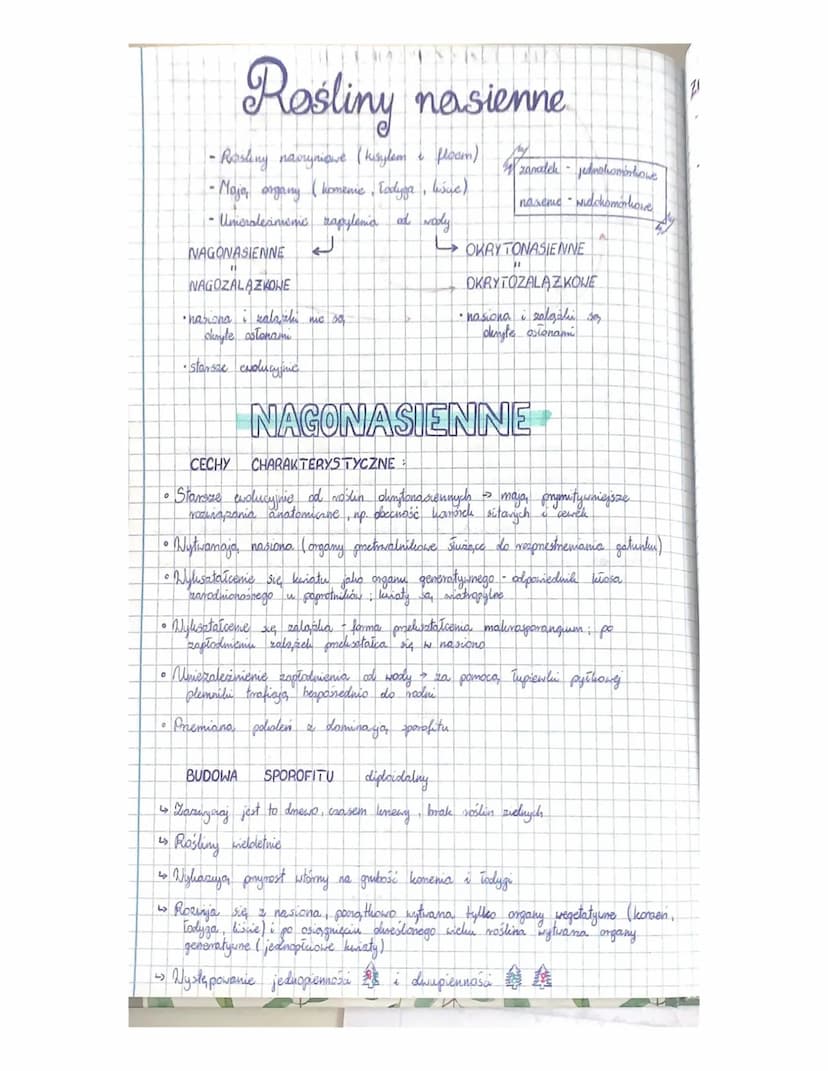 Rośliny nasienne
- Rośliny naczyniowe (ksylem i floem)
- Mają organy (korzenie, łodyga, liście)
- Uniezależnienie zapylenia od wody
zarodek - jednokomórkowe
nasienie - wielokomórkowe
NAGONASIENNE
"
NAGOZALĄŻKOWE
• nasiona i zalążki nie są
okryte osłonami
• starsze ewolucyjnie
OKRYTONASIENNE
"
OKRYTOZALĄŻKOWE
• nasiona i zalążki są
okryte osłonami
NAGONASIENNE
CECHY CHARAKTERYSTYCZNE :
• Starsze ewolucyjnie od roślin okrytonasiennych → mają prymitywniejsze
rozwiązania anatomiczne, np. obecność komórek sitowych i cewek
• Wytwarzają nasiona (organy przetrwalnikowe służące do rozprzestrzeniania gatunku)
• Wykształcenie się kwiatu jako organu generatywnego - odpowiednik kłosa
zarodnionośnego u paprotników ; kwiaty są wiatropylne
• Wykształcenie się zalążka - forma przekształcenia makrosporangium ; po
zapłodnieniu zalążek przekształca się w nasiono
• Uniezależnienie zapłodnienia od wody → za pomocą łupiewki pyłkowej
plemniki trafiają bezpośrednio do rodni
• Przemiana pokoleń z dominacją sporofitu
BUDOWA SPOROFITU diploidalny
↳ Zazwyczaj jest to drzewo, czasem krzewy, brak roślin zielnych
↳ Rośliny wieloletnie
↳ Wykazują przyrost wtórny na grubość korzenia i łodygi
↳ Rozwija się z nasiona, początkowo wytwarza tylko organy wegetatywne (korzeń,
łodyga, liście) i po osiągnięciu określonego wieku roślina wytwarza organy
generatywne (jednopłciowe kwiaty)
↳ Występowanie jednopienności i dwupienności